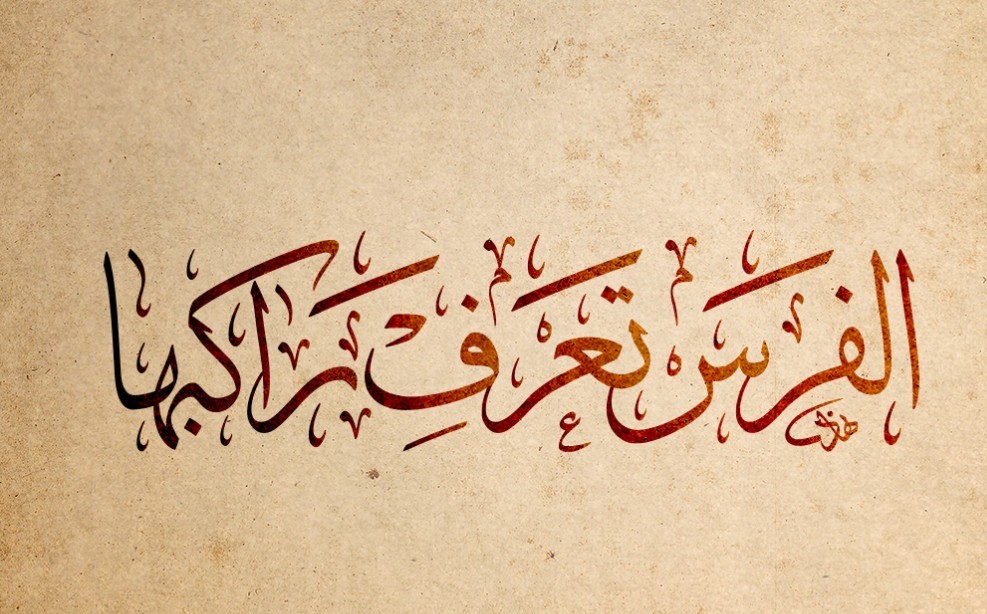 الفرسَ تعرَفِ رَاكبها